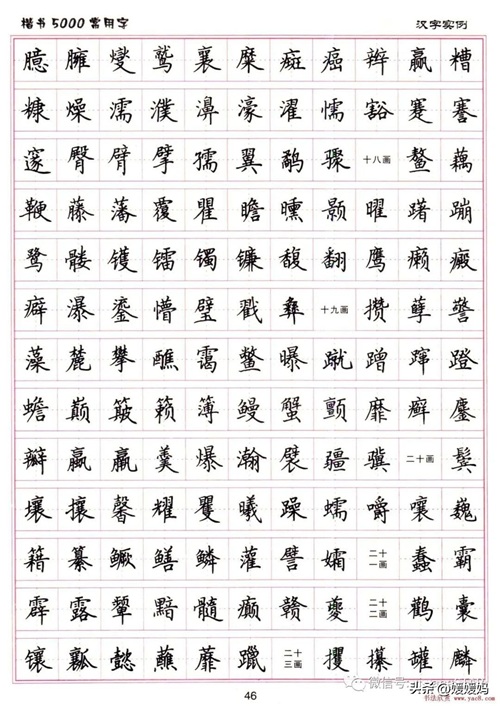 楷书5000常用字 汉字实例
臆臃燮鹫襄糜癍癌辫赢糟
糠燥濡濮濞濠濯懦豁蹇謇
邃臀臂擘孺翼鹬骤十八画鳌藕
鞭藤藩覆瞿瞻曛颢曜躇蹦
鹭髅镬镭镯镰馥翻鹰癞癜
癖瀑鎏懵璧戳彝十九画攒孽警
藻麓攀醮霭鳖曝蹴蹭蹿蹬
蟾巅簸籁簿鳗蟹颤靡癣鏖
瓣蠃羸羹爆瀚襞疆骥二十画鬓
壤攘馨耀矍曦躁蠕嚼嚷巍
籍纂鳜鳝鳞灌譬孀二十一画蠢霸
霹露颦黯髓癫赣夔二十二画鹳囊
镶瓤懿蘸蘼躐二十三画攫攥罐麟
46
头条 @媛媛妈
书法欣赏 www.yac8.com